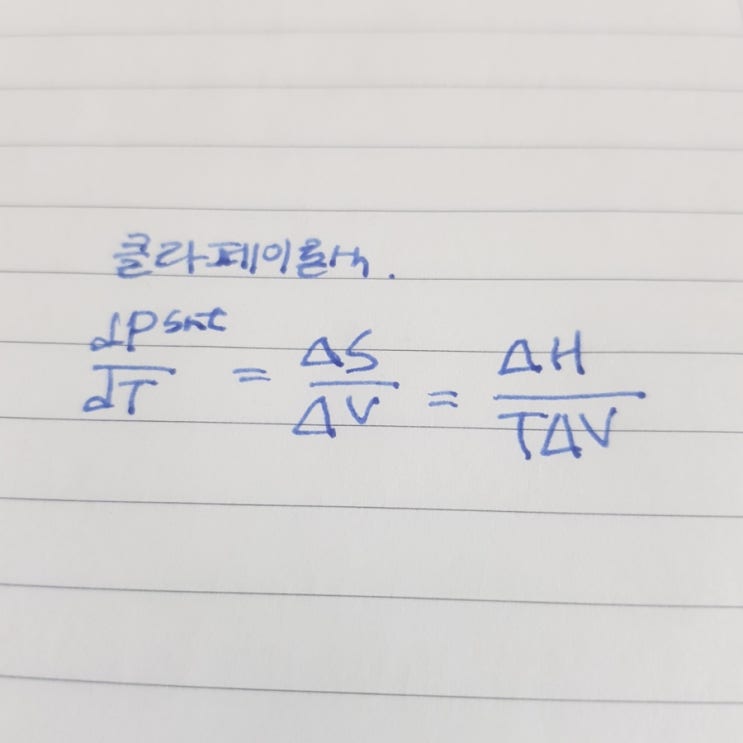 클라페이롤식.
dP sat / dT = ΔS / ΔV = ΔH / TΔV